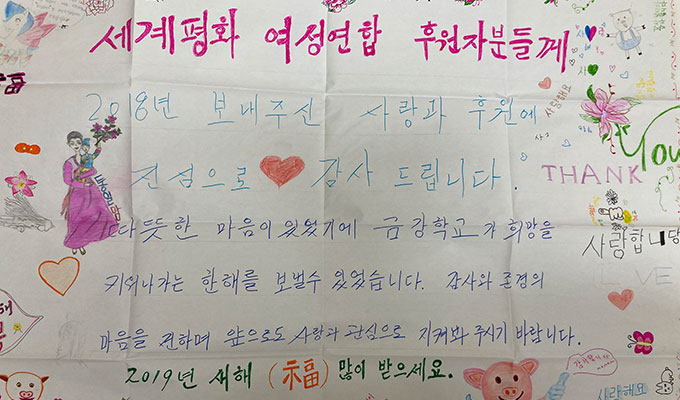 세계평화 여성연합 후원자분들께
2018년 보내주신 사랑과 후원에
진심으로 감사 드립니다.
따뜻한 마음이 있었기에 금강학교가 희망을
키워나가는 한해를 보낼수 있었습니다. 감사와 존경의
마음을 전하며 앞으로도 사랑과 관심으로 지켜봐 주시기 바랍니다.
2019년 새해 (福) 많이 받으세요.
福
사랑해요
THANK
You
사랑합니당
LOVE
사랑해요